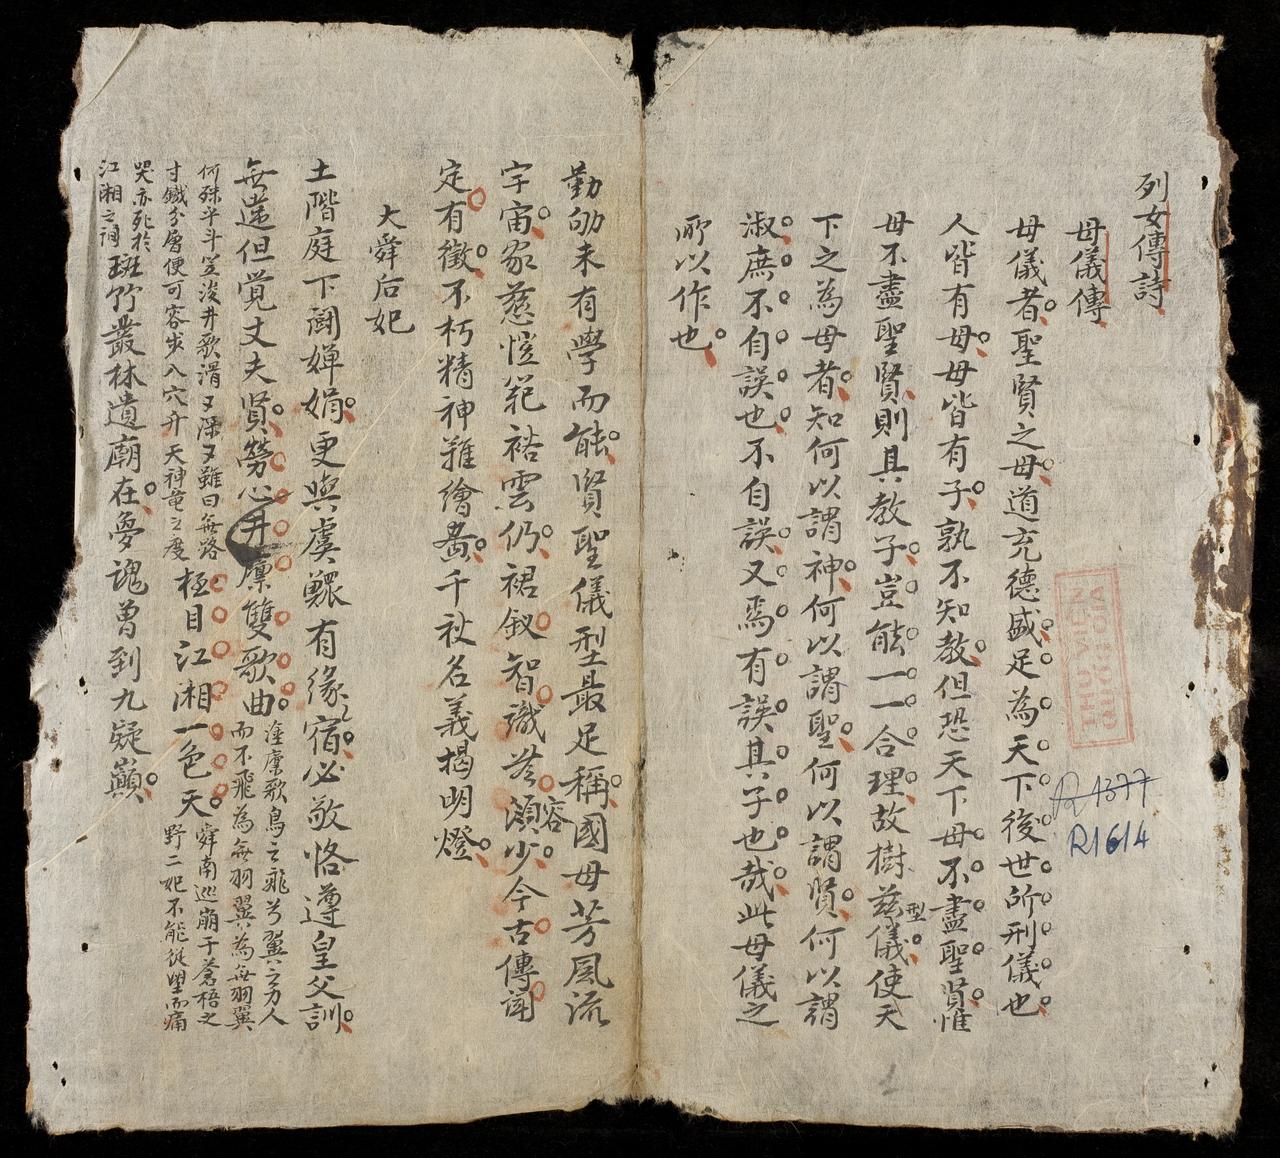 列女傳詩
母儀傳
母儀者聖賢之母道充德盛足為天下後世所刑儀也
人皆有母母皆有子孰不知教但恐天下母不盡聖賢惟
母不盡聖賢則其教子豈能一一合理故樹茲儀型使天
下之為母者知何以謂神何以謂聖何以謂賢何以謂
淑庶不自誤也不自誤又焉有誤其子也哉此母儀之
所以作也
R1377
R1614
勤劬未有學而能賢聖儀型最足稱國母芳風流
宇宙家慈愷範裕雲仍裙釵智識無容湏少今古傳聞
定有徵不朽精神難繪畵千秋名義揭明燈
大舜后妃
土階庭下閫嬋娟更與虞鰥有緣宿必敬恪遵皇父訓
無違但覚丈夫賢勞心井廪雙歌曲
廪歌鳥之飛兮翼之力人
而不飛為無羽翼為無羽翼
何殊平斗笠浚井歌渭又深又雖曰無路
寸鐡分層便可容步入穴升天神竜之度
極目江湘一色天
舜南巡崩于蒼梧之
野二妃不能從望而痛
哭亦死於
江湘之间
斑竹叢林遺廟在夢魂曽到九疑巔